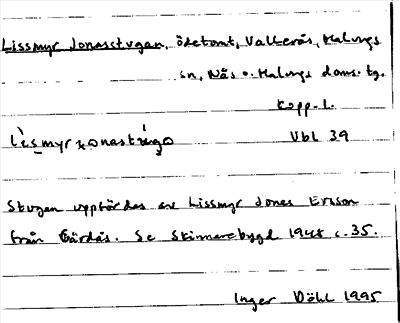 Lissmyr Jonasstugan, ödetomt, Vallerås, Malungs
sn, Nås o. Malungs doms. tg.
Kopp. l.
Vbl 39
Stugan uppfördes av Lissmyr Jonas Ersson
från Gärdås. Se Skinnarebygd 1948 s. 35.
Inger Döhl 1995